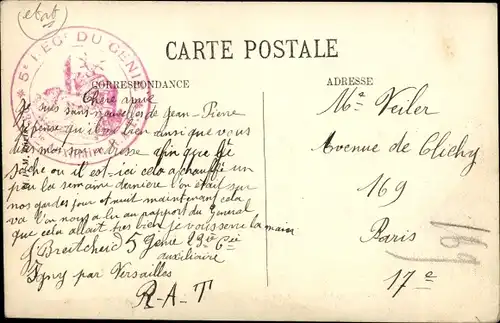 etat
5e REGt DU GENIE
CARTE POSTALE
CORRESPONDANCE
ADRESSE
Chère amie
Je suis sans nouvelles de Jean-Pierre
Je pense qu'il va bien ainsi que vous
mon adresse afin que
ou il est ici cela a chauffé un
peu la semaine dernière l'on était sur
nos gardes jour et nuit maintenant cela
va l'on nous a lu au rapport du General
que cela allait tres bien je vous serre la main
Breitcheid 5 Genie 29e Cie
auxiliaire
Igny par Versailles
R-A-T
Me Veiler
Avenue de Clichy
169
Paris
17e
169